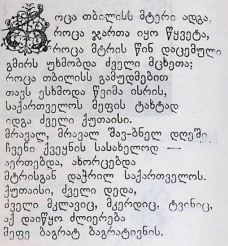 როცა თბილისს მტერი ადგა,
როცა ჯართა იყო წყვეტა,
როცა მტრის წინ დაცემული
გმირს უხმობდა ძველი მცხეთა;
როცა თბილისს გამუდმებით
თავს ესხმოდა წვიმა ისრის,
საქართველოს მეფის ტახტად
იდგა ძველი ქუთაისი.
მრავალ, მრავალ შავ-ბნელ დღეში
ჩვენი ქვეყნის სასახელოდ —
აერთებდა, ახორცებდა
მტრისგან დაჭრილ საქართველოს.
ქუთაისი, ძველი დედა,
ძველი მკლავიც, მკერდიც, ტვინიც,
აქ დაიწყო ძლიერება
მეფე ბაგრატ ბაგრატივნის.